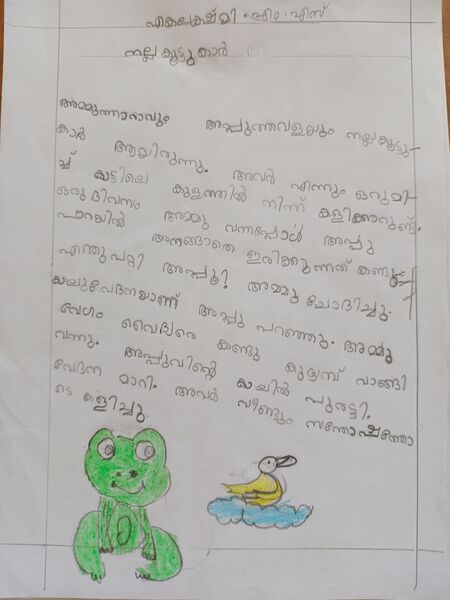 എലൈക്ഷ്മി എം.എസ്
നല്ല കൂട്ടുകാർ
അമ്മുത്താറാവും അപ്പുത്തവളയും നല്ലകൂട്ടു-
കാർ ആയിരുന്നു. അവർ എന്നും ഒരുമി-
ച്ച് കാട്ടിലെ കുളത്തിൽ നിന്ന് കളിക്കാറുണ്ട്.
ഒരുദിവസം അമ്മു വന്നപ്പോൾ അപ്പു
പാറയിൽ അനങ്ങാതെ ഇരിക്കുന്നത് കണ്ടു
എന്തുപറ്റി അപ്പൂ? അമ്മു ചോദിച്ചു.
കാലുവേദനയാണ് അപ്പു പറഞ്ഞു. അമ്മു
വേഗം വൈദ്യരെ കണ്ടു കുഴമ്പ് വാങ്ങി
വന്നു. അപ്പുവിന്റെ കാലിൽ പുരട്ടി.
വേദന മാറി. അവർ വീണ്ടും സന്തോഷത്തോ
ടെ കളിച്ചു.